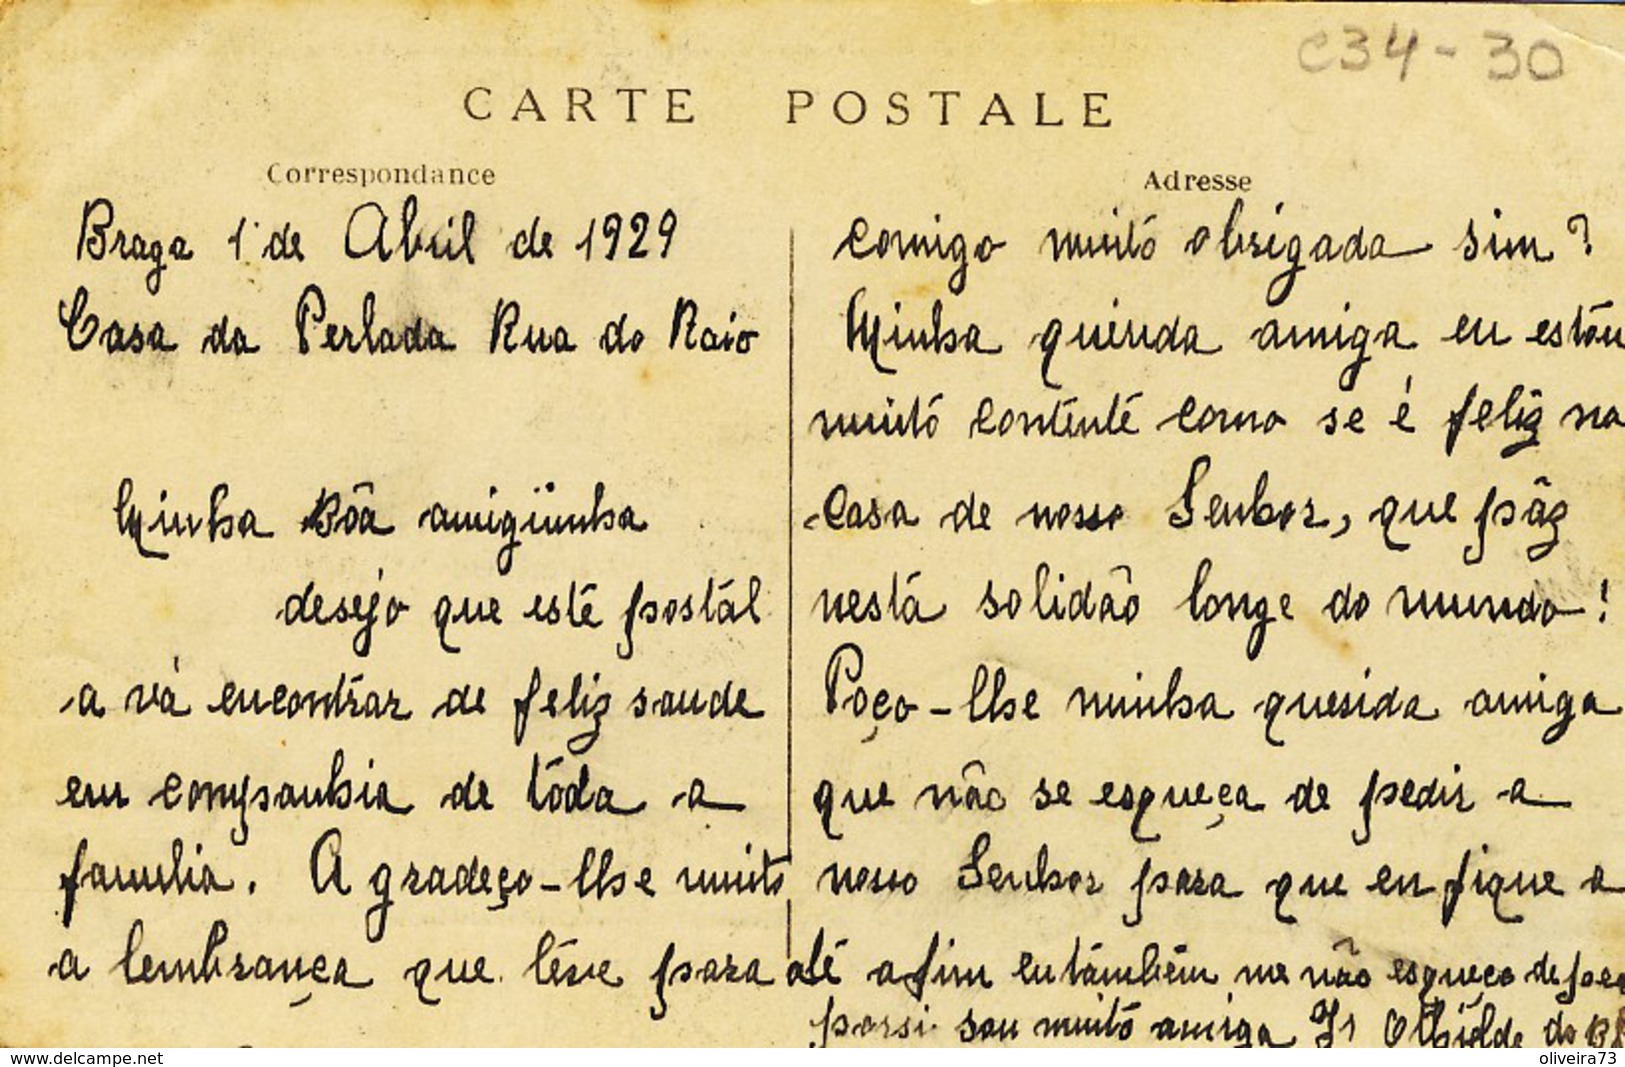 C34-30
CARTE POSTALE
Correspondance
Braga 1 de Abril de 1929
Casa da Perlada Rua do Raio
Minha Bôa amigüinha
desejo que esté postál
a vá encontrar de feliz saude
em companhia de tôda a
familia. Agradeço-lhe muito
a lembrança que téve para
Adresse
comigo muitó obrigada sim?
Minha querida amiga eu estóu
muitó contenté como se é feliz na
casa de nosso Senhor, que pâz
nestá solidão longe do mundo!
Poço-lhe minha querida amiga
que não se esqueça de pedir a
nosso Senhor para que eu fique a
até a fim eu támbêm me não esqueço de
por si sou muitó amiga Ir do
www.delcampe.net
oliveira73